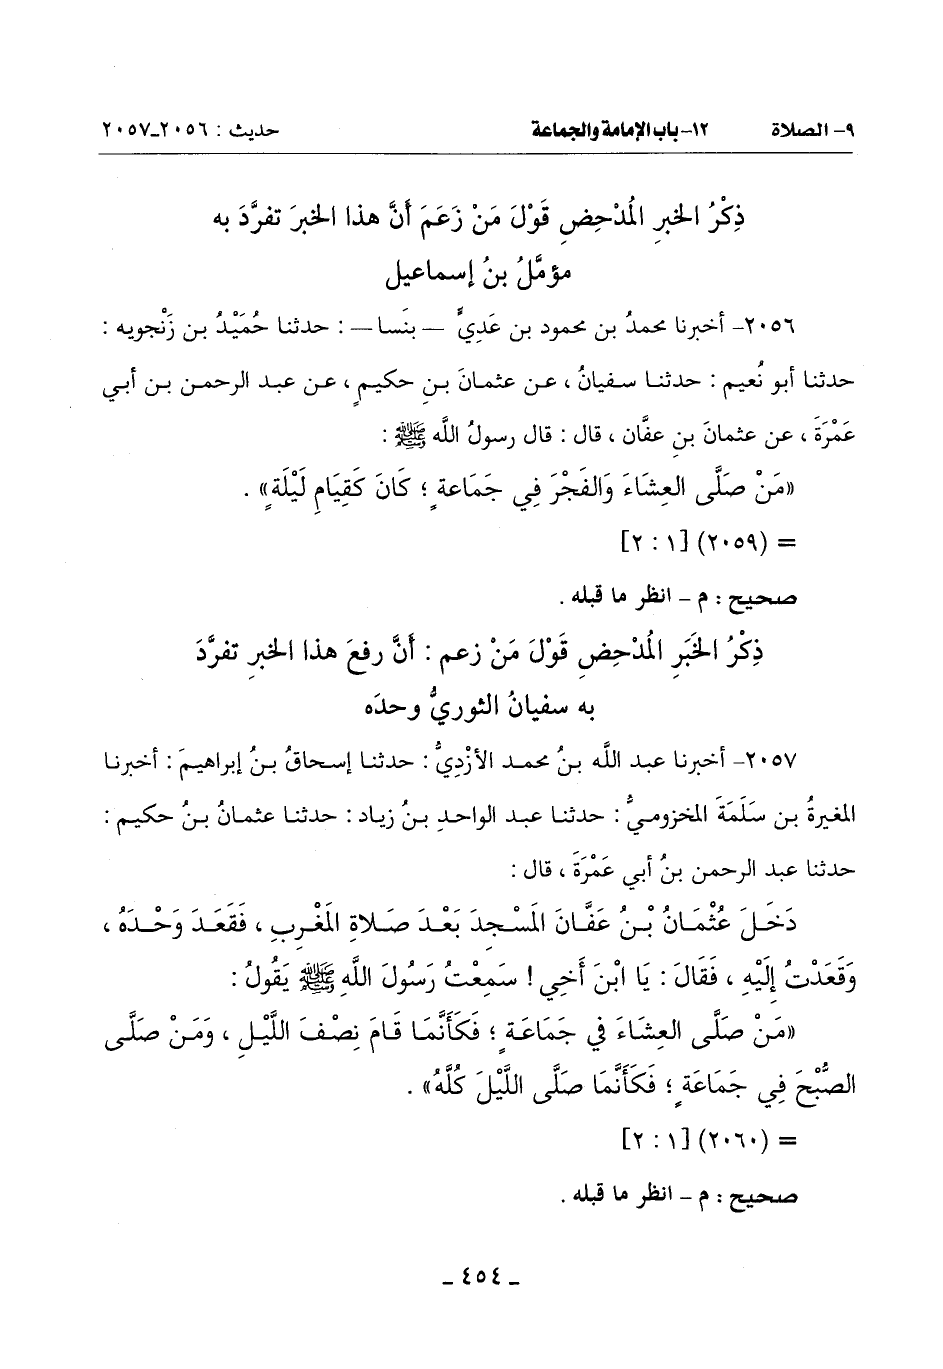 ٩- الصلاة ١٢- باب الإمامة والجماعة حديث : ٢٠٥٦_٢٠٥٧
ذِكْرُ الخبرِ المُدْحِضِ قَوْلَ مَنْ زَعَمَ أَنَّ هذا الخبرَ تفرَّدَ به
مؤمَّلُ بنُ إسماعيل
٢٠٥٦- أخبرنا محمدُ بن محمود بن عَدِيٍّ — بنَسا — : حدثنا حُمَيْدُ بن زَنْجويه :
حدثنا أبو نُعيم : حدثنا سفيانُ ، عن عثمانَ بنِ حكيمٍ ، عن عبد الرحمن بن أبي
عَمْرَةَ ، عن عثمانَ بنِ عفَّان ، قال : قال رسولُ اللَّه ﷺ :
«مَنْ صَلَّى العِشَاءَ وَالفَجْرَ فِي جَمَاعةٍ ؛ كَانَ كَقِيَامِ لَيْلَةٍ» .
= (٢٠٥٩) [١ : ٢]
صحيح : م - انظر ما قبله .
ذِكْرُ الخَبَرِ المُدْحِضِ قَوْلَ مَنْ زعم : أَنَّ رفعَ هذا الخبرِ تفرَّدَ
به سفيانُ الثوريُّ وحدَه
٢٠٥٧- أخبرنا عبد اللَّه بنُ محمد الأزْدِيُّ : حدثنا إسحاقُ بنُ إبراهيمَ : أخبرنا
المغيرةُ بن سَلَمَةَ المخزوميُّ : حدثنا عبد الواحدِ بنُ زياد : حدثنا عثمانُ بنُ حكيم :
حدثنا عبد الرحمن بنُ أبي عَمْرَةَ ، قال :
دَخَلَ عُثْمَانُ بْنُ عَفَّانَ المَسْجِدَ بَعْدَ صَلاةِ المَغْرِبِ ، فَقَعَدَ وَحْدَهُ ،
وَقَعَدْتُ إِلَيْهِ ، فَقَالَ : يَا ابْنَ أَخِي ! سَمِعْتُ رَسُولَ اللَّهِ ﷺ يَقُولُ :
«مَنْ صَلَّى العِشَاءَ فِي جَمَاعَةٍ ؛ فَكَأَنَّمَا قَامَ نِصْفَ اللَّيْلِ ، وَمَنْ صَلَّى
الصُّبْحَ فِي جَمَاعَةٍ ؛ فَكَأَنَّمَا صَلَّى اللَّيْلَ كُلَّهُ» .
= (٢٠٦٠) [١ : ٢]
صحيح : م - انظر ما قبله .
- ٤٥٤ -